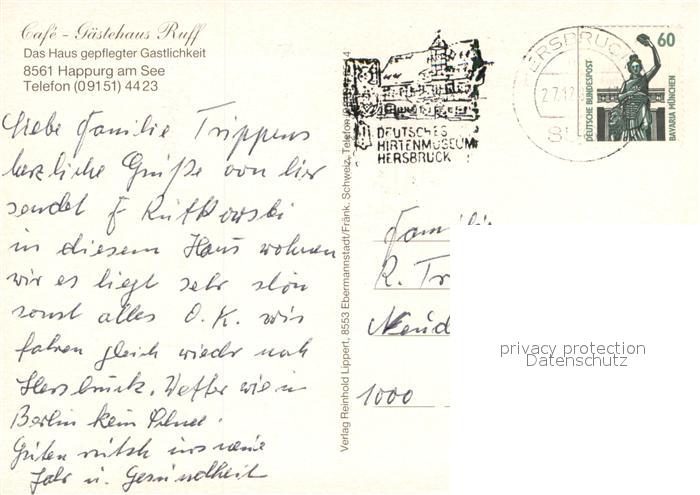 Café - Gästehaus Ruff
Das Haus gepflegter Gastlichkeit
8561 Happurg am See
Telefon (09151) 4423
Liebe Familie Trippens
herzliche Grüße von hier
sendet F Rutkowski
in diesem Haus wohnen
wir es liegt sehr schön
sonst alles O.K. wir
fahren gleich wieder nach
Hersbruck. Wetter wie in
Berlin kein Schnee.
Guten rutsch ins neue
Jahr u. Gesundheit
Verlag Reinhold Lippert, 8553 Ebermannstadt/Fränk. Schweiz, Telefon
DEUTSCHES
HIRTENMUSEUM
HERSBRUCK
HERSBRUCK
27.12
60
DEUTSCHE BUNDESPOST
BAVARIA MÜNCHEN
Familie
R. Tr
Neud
1000
privacy protection
Datenschutz